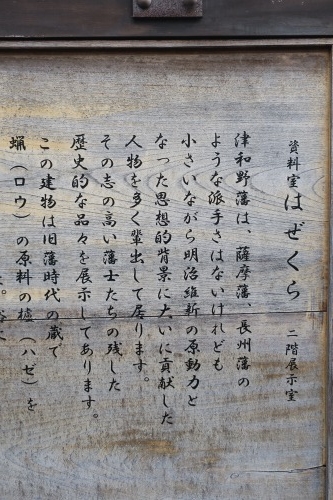 資料室 はぜくら 二階展示室
津和野藩は、薩摩藩、長州藩の
ような派手さはないけれども
小さいながら明治維新の原動力と
なった思想的背景に大いに貢献した
人物を多く輩出して居ります。
その志の高い藩士たちの残した
歴史的な品々を展示してあります。
この建物は旧藩時代の蔵で
蝋（ロウ）の原料の櫨（ハゼ）を